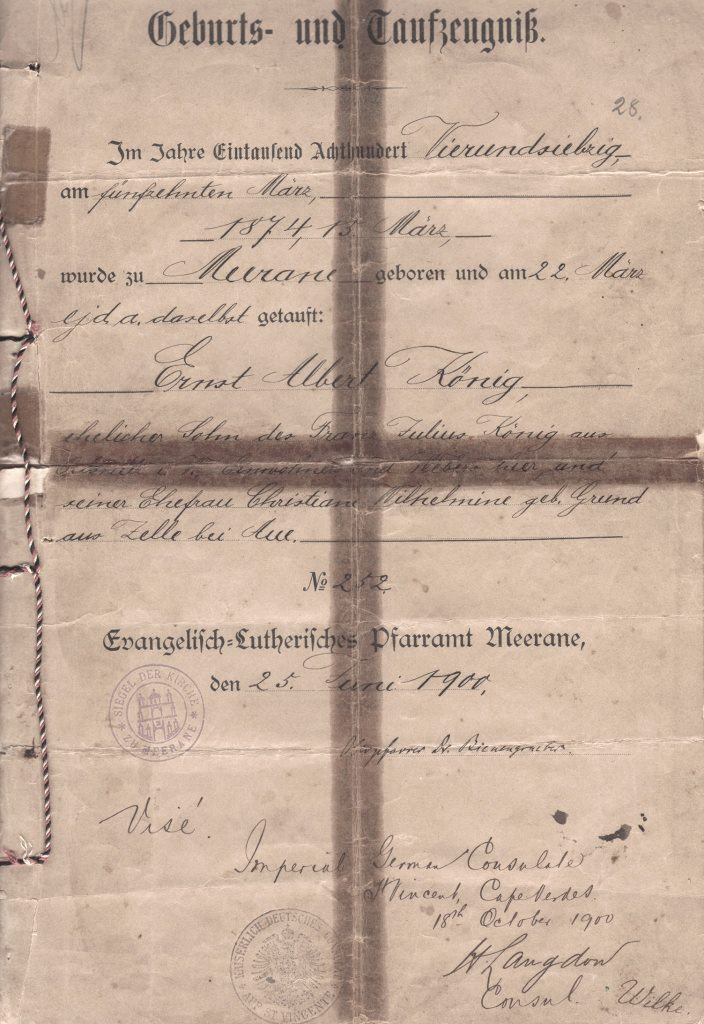 Geburts- und Taufzeugniß.
28.
Im Jahre Eintausend Achthundert Vierundsiebzig
am fünfzehnten März,
1874, 15 März,
wurde zu Meerane geboren und am 22. März
ejd. a. daselbst getauft:
Ernst Albert König,
ehelicher Sohn des Franz Julius König aus
Einwohners und Webers hier, und
seiner Ehefrau Christiane Wilhelmine geb. Grund
aus Zelle bei Aue.
No 252.
Evangelisch-Lutherisches Pfarramt Meerane,
den 25. Juni 1900.
SIEGEL DER KIRCHE ZU MEERANE
Oberpfarrer Dr.
Visé.
Imperial German Consulate
St Vincent, Cape Verdes.
18th October 1900
H Langdon
Consul. Wilke.
KAISERLICH DEUTSCHES
ST. VINCENTE